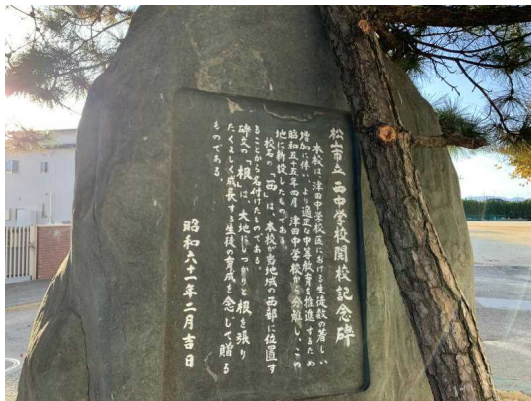 松山市立西中学校開校記念碑
本校は、津田中学校区における生徒数の著しい
増加に伴い、より適正な中等教育を推進するため
昭和五十五年四月津田中学校から分離し、この
地に新設したものである。
校名の「西」は、本校が当地域の西部に位置す
ることから名付けたものである。
碑文の「根」は、大地にしっかりと根を張り
たくましく成長する生徒の育成を念じて、贈る
ものである。
昭和六十一年二月吉日